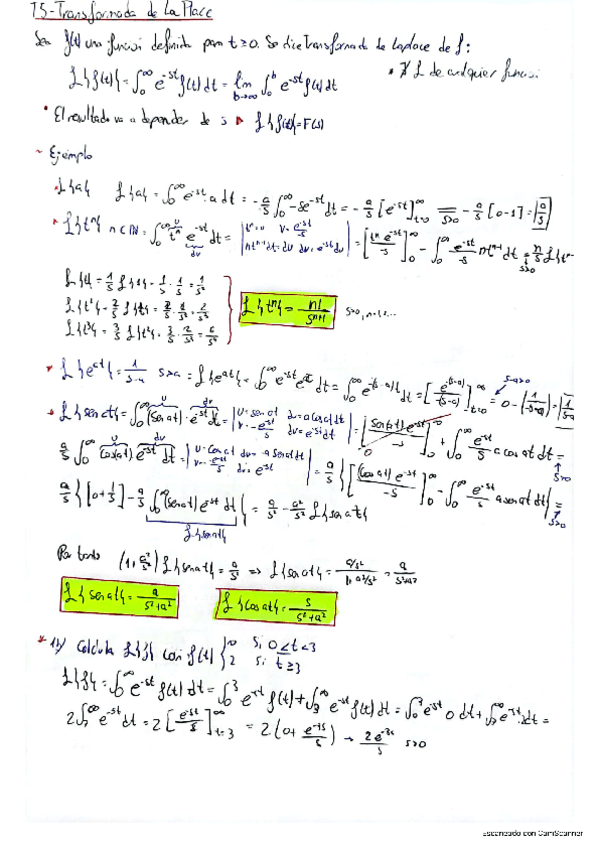 T5-Transformada de La Place
Sea f(t) una función definida para t ≥ 0. Se dice transformada de Laplace de f:
L{f(t)} = ∫₀^∞ e^-st f(t) dt = lim b→∞ ∫₀^b e^-st f(t) dt
* ∄ L de cualquier función
* El resultado va a depender de s ▸ L{f(t)} = F(s)
~ Ejemplo
L{a} L{a} = ∫₀^∞ e^-st · a dt = -a/s ∫₀^∞ -s e^-st dt = -a/s [e^-st]_{t=0}^∞ = (s>0) -a/s [0-1] = a/s
L{t^n} n∈ℕ = ∫₀^∞ t^n e^-st dt = = [t^n e^-st/-s]₀^∞ - ∫₀^∞ e^-st/-s n t^n-1 dt = (s>0) n/s L{t^n-
L{t} = 1/s L{1} = 1/s · 1/s = 1/s²
L{t²} = 2/s L{t} = 2/s · 1/s² = 2/s³
L{t³} = 3/s L{t²} = 3/s · 2/s³ = 6/s⁴
L{t^n} = n!/s^n+1
s>0, n=1,2...
L{e^at} = 1/s-a s>a = L{e^at} = ∫₀^∞ e^-st e^at dt = ∫₀^∞ e^-(s-a)t dt = [e^-(s-a)/-(s-a)]_{t=0}^∞ = (s-a>0) 0 - (1/-(s-a)) = 1/s-a
L{sen at} = ∫₀^∞ (sen at) · e^-st dt = | u = sen at du = a cos at dt = [sen(at) e^-st/-s]₀^∞ + ∫₀^∞ e^-st/s a cos at dt =
a/s ∫₀^∞ cos(at) e^-st dt = | u = cos at du = -a sen at dt = a/s {[(cos at) e^-st/-s]₀^∞ - ∫₀^∞ e^-st/s a sen at dt} = s>0
a/s {[0+1/s] - a/s ∫₀^∞ (sen at) e^-st dt} = a/s² - a²/s² L{sen at}
L{sen at}
Por tanto (1+a²/s²) L{sen at} = a/s² ⇒ L{sen at} = a/s² / 1+a²/s² = a/s²+a²
L{sen at} = a/s²+a² L{cos at} = s/s²+a²
Calcula L{f} con f(t) { 0 si 0≤t<3
2 si t≥3
L{f} = ∫₀^∞ e^-st f(t) dt = ∫₀³ e^-st f(t) + ∫₃^∞ e^-st f(t) dt = ∫₀³ e^-st 0 dt + ∫₃^∞ e^-st · 2 dt =
2 ∫₃^∞ e^-st dt = 2 [e^-st/s]_{t=3}^∞ = 2 (0 + e^-3s/s) → 2e^-3s/s s>0
Escaneado con CamScanner